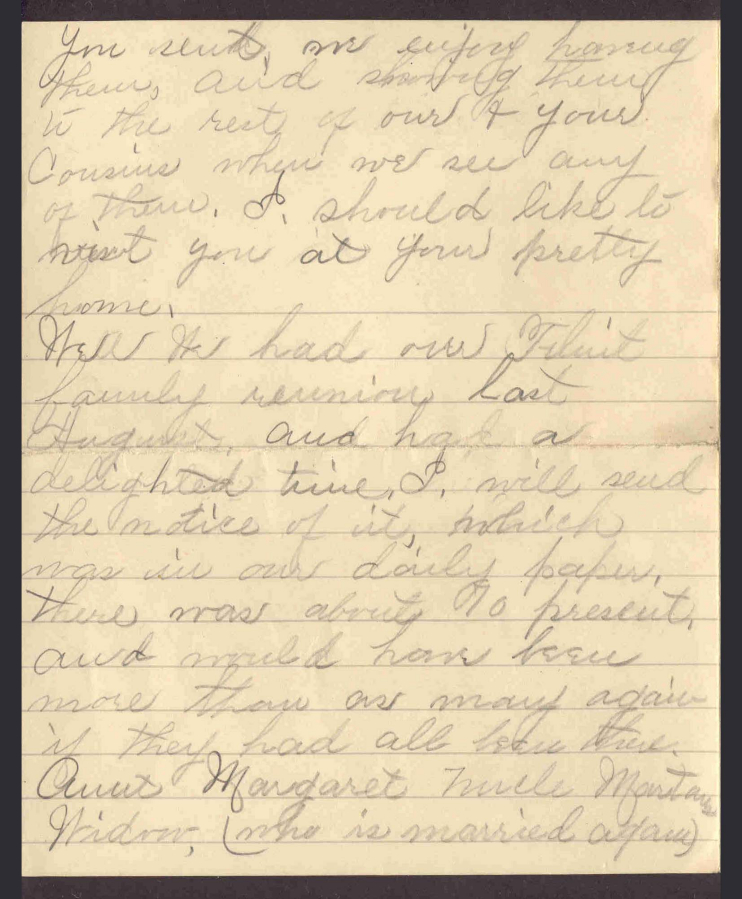 You sent, we enjoy having
them, and showing them
to the rest of our & your
Cousins when we see any
of them. I. should like to
visit you at your pretty
home.
Well We had our Flint
family reunion last
August, and had a
delighted time, I. will send
the notice of it, which
was in our daily paper.
there was about 70 present,
and would have been
more than as may again
if they had all been there.
Aunt Margaret Uncle
Widow, (who is married again)